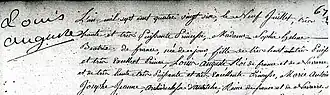 Louis
Auguste
L'an mil sept cent quatre vingt six, le Neuf Juillet,
haute et très Puissante Princesse, Madame Sophie Helene
Beatrix de france, fille de très haut
et très Puissant Prince Louis Auguste Roi de france et de Navarre,
et de très haute très Puissante et très Excellente Princesse, Marie Antoinette
Josephe Jeanne Archiduchesse d'autriche, Reine de france et de